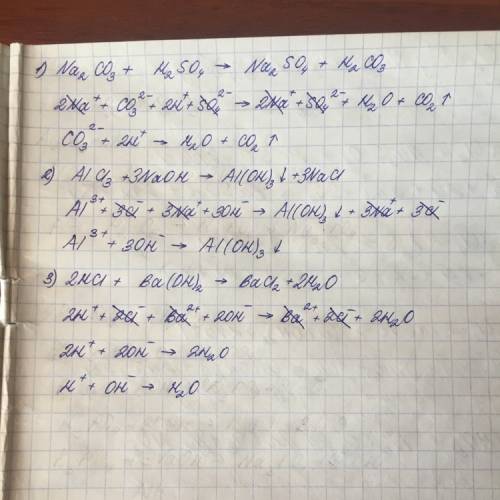 1) Na₂CO₃ + H₂SO₄ → Na₂SO₄ + H₂CO₃
2Na⁺ + CO₃²⁻ + 2H⁺ + SO₄²⁻ → 2Na⁺ + SO₄²⁻ + H₂O + CO₂↑
CO₃²⁻ + 2H⁺ → H₂O + CO₂↑
2) AlCl₃ + 3NaOH → Al(OH)₃↓ + 3NaCl
Al³⁺ + 3Cl⁻ + 3Na⁺ + 3OH⁻ → Al(OH)₃↓ + 3Na⁺ + 3Cl⁻
Al³⁺ + 3OH⁻ → Al(OH)₃↓
3) 2HCl + Ba(OH)₂ → BaCl₂ + 2H₂O
2H⁺ + 2Cl⁻ + Ba²⁺ + 2OH⁻ → Ba²⁺ + 2Cl⁻ + 2H₂O
2H⁺ + 2OH⁻ → 2H₂O
H⁺ + OH⁻ → H₂O